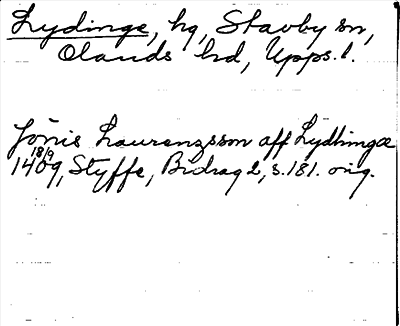 Lydinge, hg, Stavby sn,
Olands hd, Upps. l.
Jönis Laurenzsson aff Lydhingæ
18/9
1409, Styffe, Bidrag 2, s. 181. orig.